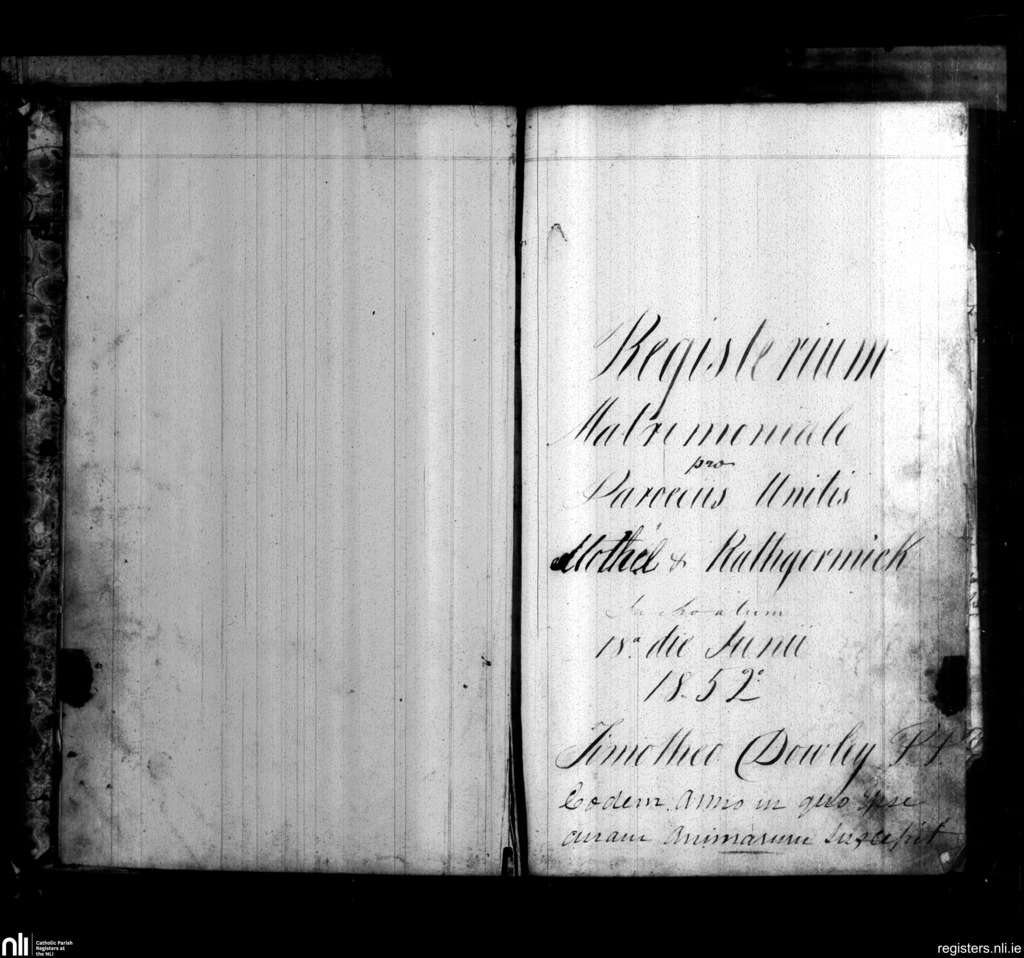 Registerium
Matrimoniale
pro
Paroeciis Unitis
Mothel & Rathgormick
Inchoatum
18º die Junii
1852º
Timotheo Dowley P.P.
Eodem Anno in quo ipse
curam Animarum suscepit
nli
Catholic Parish
Registers at
the NLI
registers.nli.ie